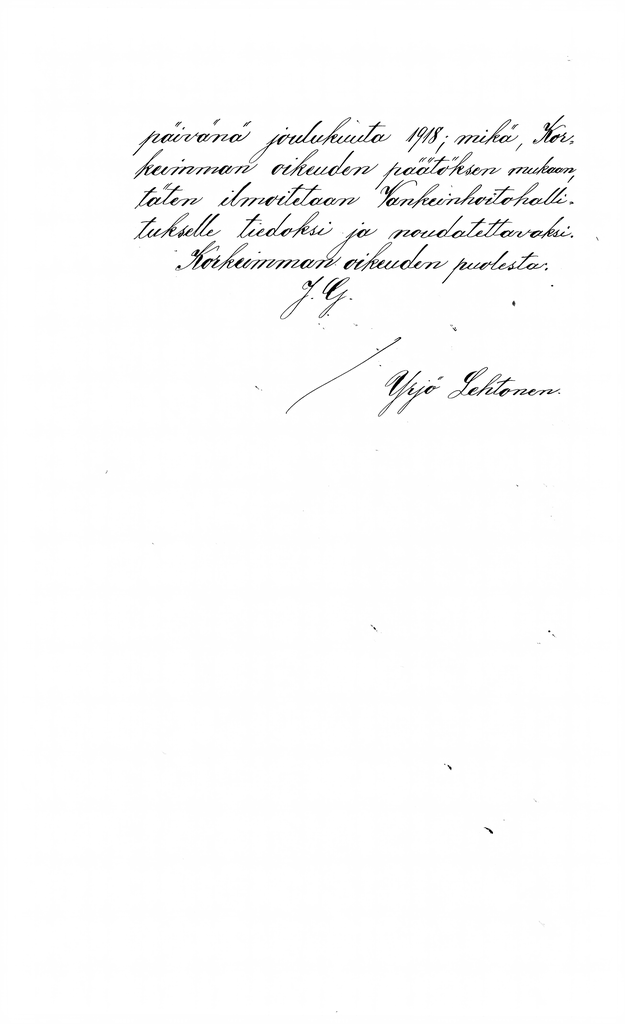 päivänä joulukuuta 1918; mikä, Kor-
keimman oikeuden päätöksen mukaan,
täten ilmoitetaan Vankeinhoitohalli-
tukselle tiedoksi ja noudatettavaksi.
Korkeimman oikeuden puolesta:
J. G.
Yrjö Lehtonen.